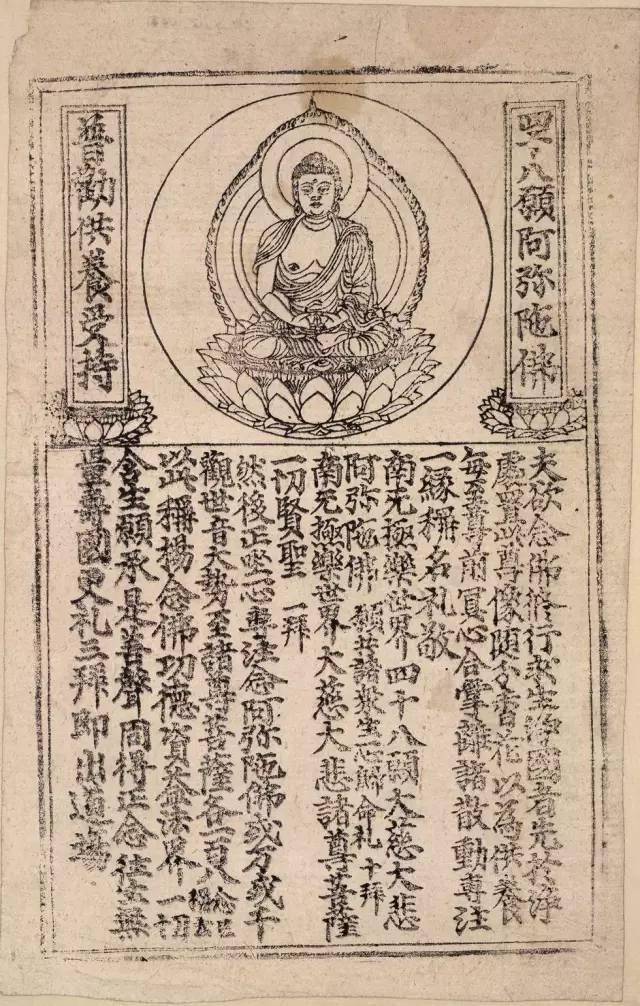 四十八願阿弥陁佛
普勸供養受持
夫欲念佛修行求生浄國者先於浄
處置此尊像随分香花以為供養
每至尊前冥心合掌離諸散動專注
一緣稱名礼敬
南无極樂世界四十八願大慈大悲
阿弥陁佛 願共諸衆生 命礼十拜
南无極樂世界大慈大悲諸尊菩薩
一切賢聖 一拜
然後正坐一心專注念阿弥陁佛或万或千
觀世音大勢至諸尊菩薩各一百八
以此稱揚念佛功德資益法界一切
含生願承是善聲同得正念往生無
量壽國更礼三拜即出道場